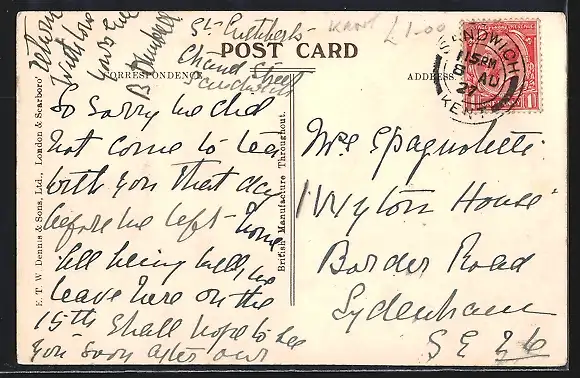 St. Cuthberts
KENT £1.00
Chain Street
Sandwich
POST CARD
CORRESPONDENCE
ADDRESS
So Sorry we did
not come to tea
with you that day
before we left home
All being well, we
leave here on the
15th Shall hope to see
you soon after our
return
with love
yours
B
Mrs Spagnoletti
1 Wyton House
Border Road
Sydenham
SE 26
SANDWICH
1.15 PM
8 AU
27
KENT
E. T. W. Dennis & Sons, Ltd., London & Scarboro'
British Manufacture Throughout.